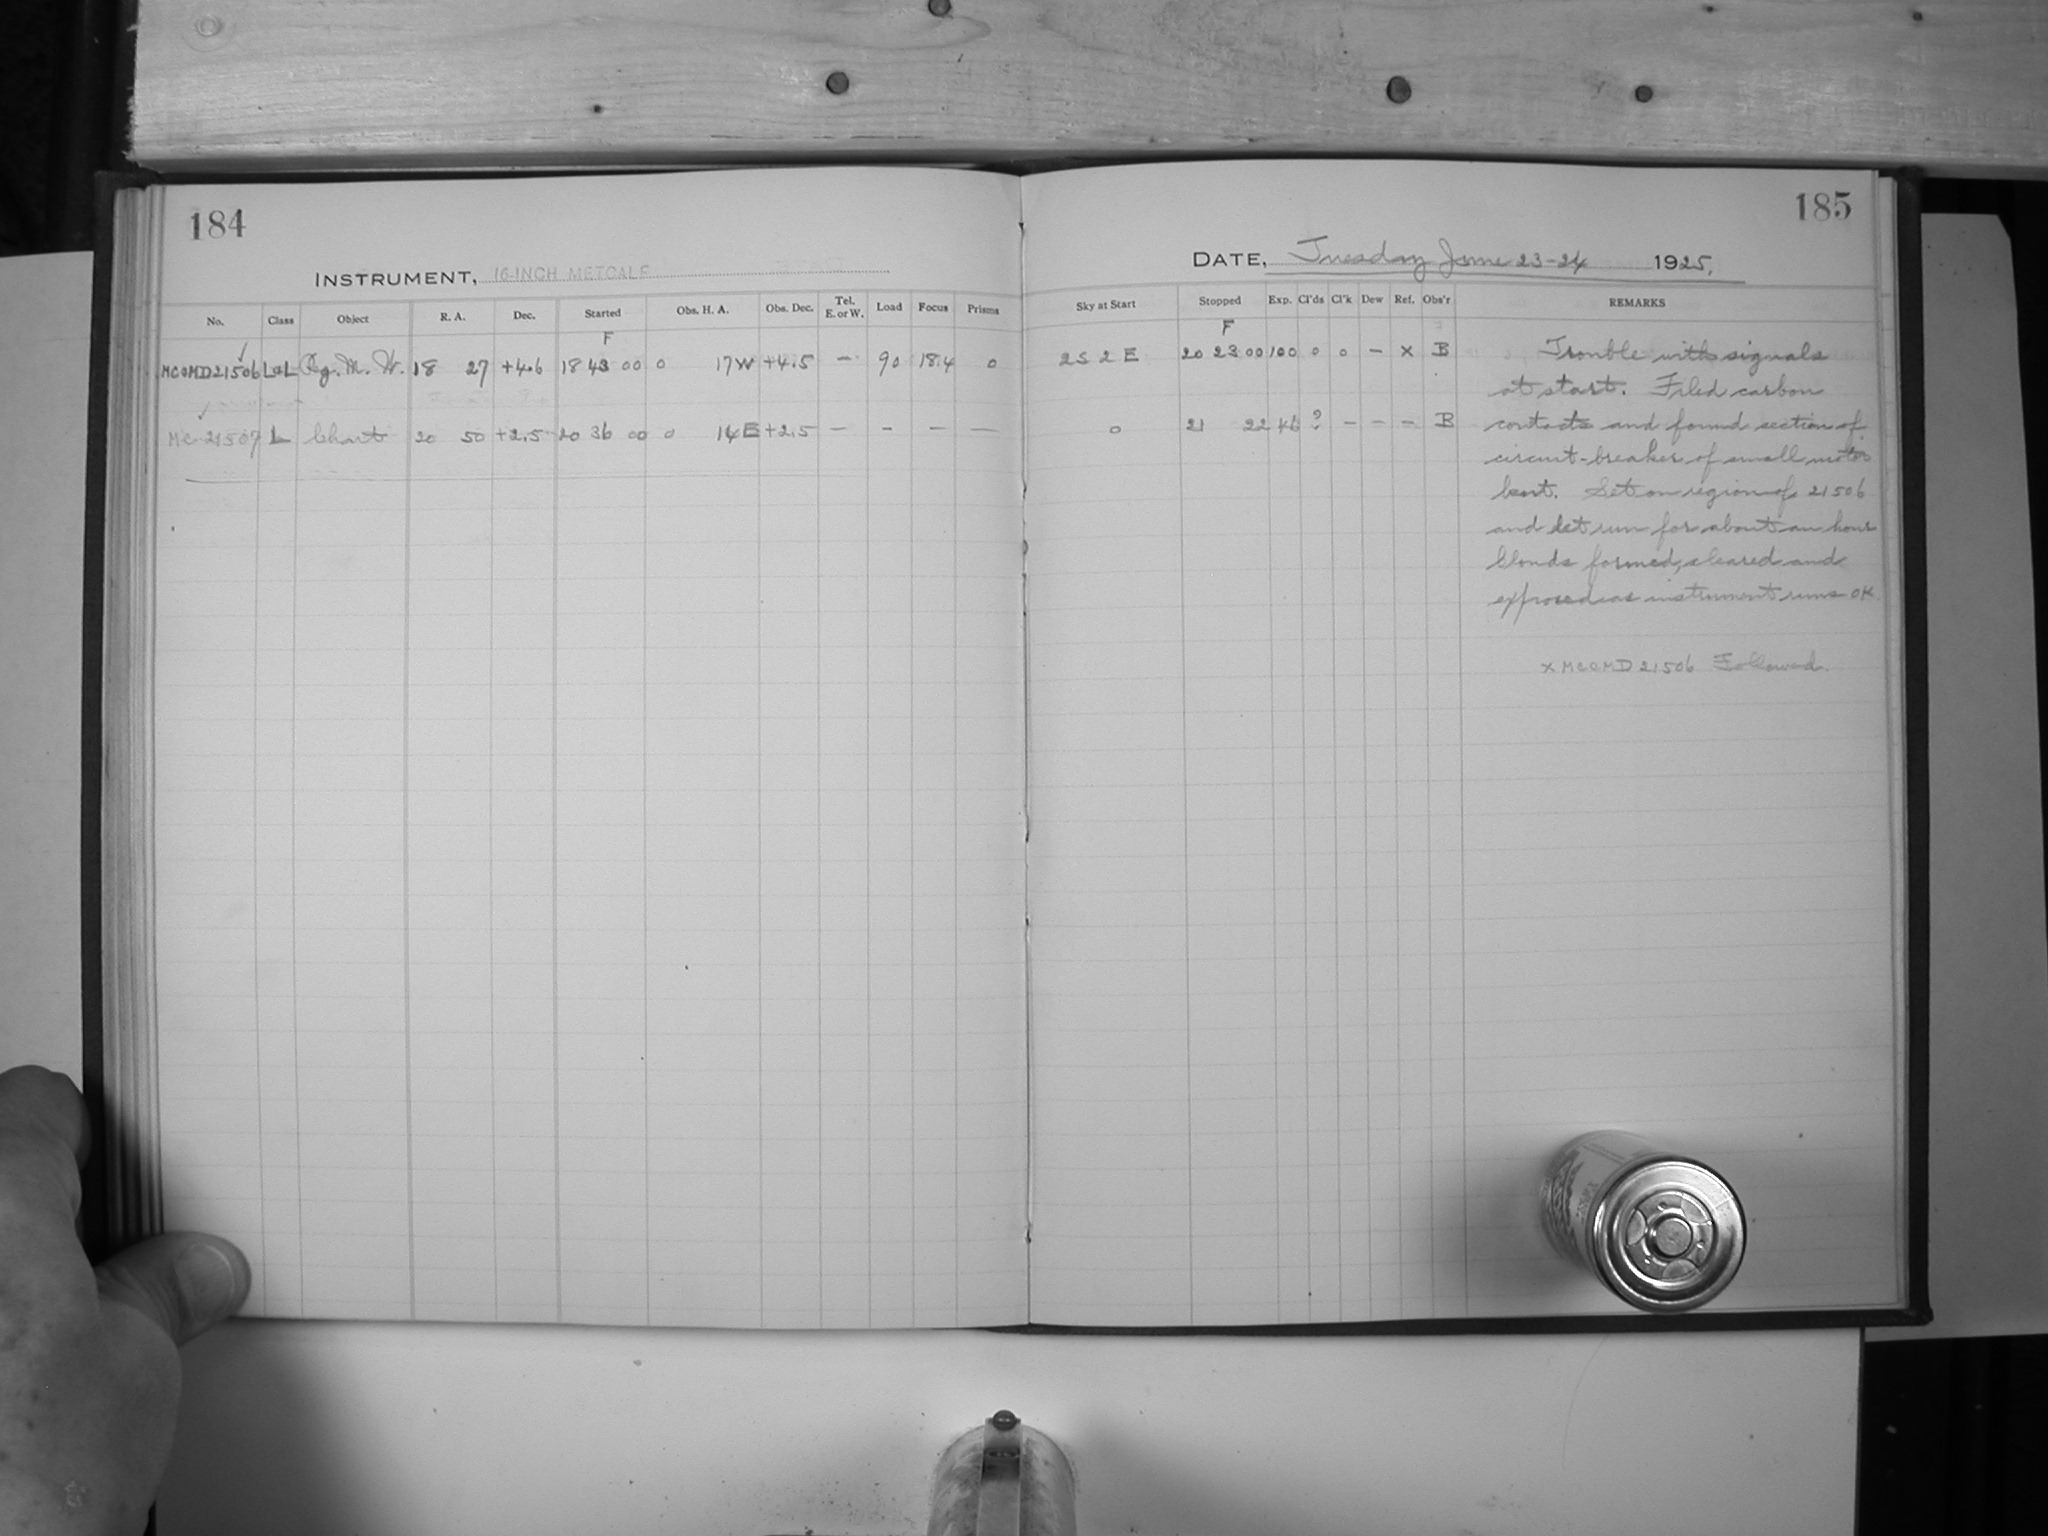 184
INSTRUMENT, 16-INCH METCALF
No. Class Object R. A. Dec. Started Obs. H. A. Obs. Dec. Tel. E. or W. Load Focus Prisms
F
21506 M. W. 18 27 +4.6 18 43 00 0 17W +4.5 — 90 18.4 0
MC 21507 L Chart 20 50 +2.5 20 36 00 0 14E +2.5 — - — —
185
DATE, Tuesday June 23-24 1925,
Sky at Start Stopped Exp. Cl'ds Cl'k Dew Ref. Obs'r REMARKS
F
2S 2 E 20 23 00 100 0 0 — X B
0 21 22 46 ? — — — B
Trouble with signals
at start. Filed carbon
contacts and found section of
circuit-breaker of small motor
bent. Set on region of 21506
and let run for about an hour
Clouds formed, cleared and
exposed as instrument runs OK.
x 21506 Followed.